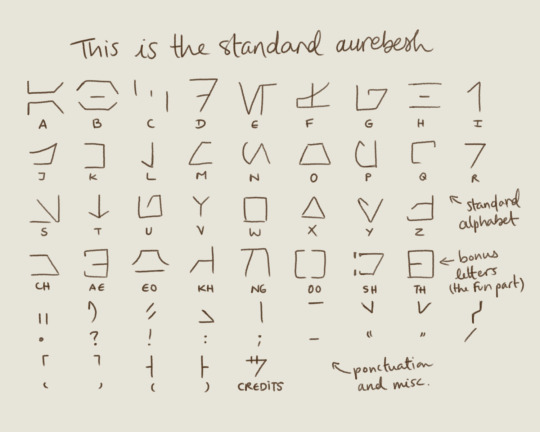 This is the standard aurebesh
A B C D E F G H I
J K L M N O P Q R
S T U V W X Y Z
standard
alphabet
CH AE EO KH NG OO SH TH
bonus
letters
(the fun part)
. ? ! : ; - " " /
' , ( ) CREDITS
ponctuation
and misc.